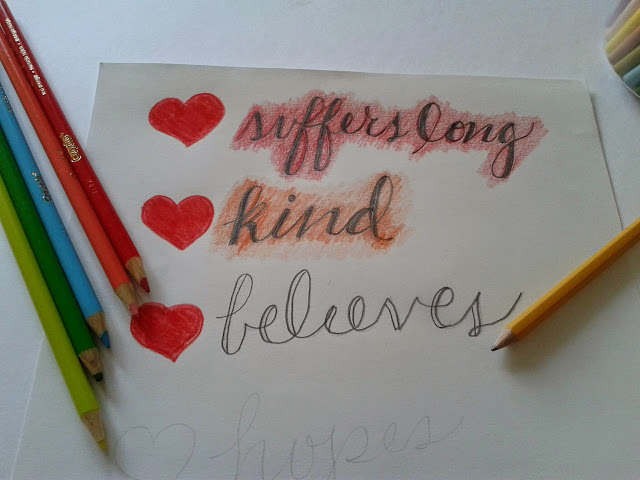 suffers long
kind
believes
hopes
Crayola